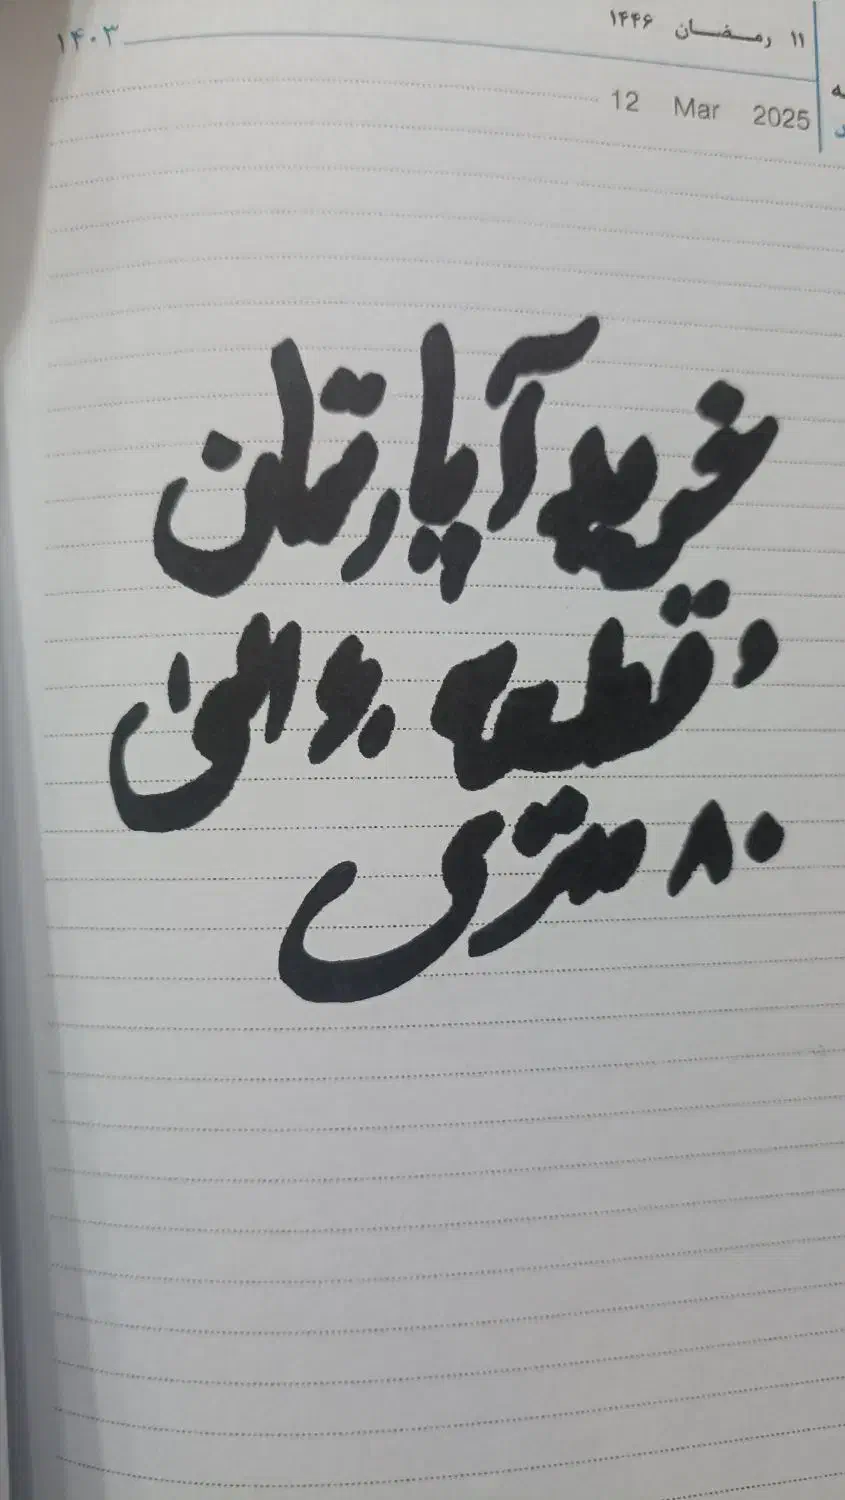 ۱۱ رمضان ۱۴۴۶
۱۴۰۳
12 Mar 2025
خرید آپارتمان
و قطعه
۸۰ متری